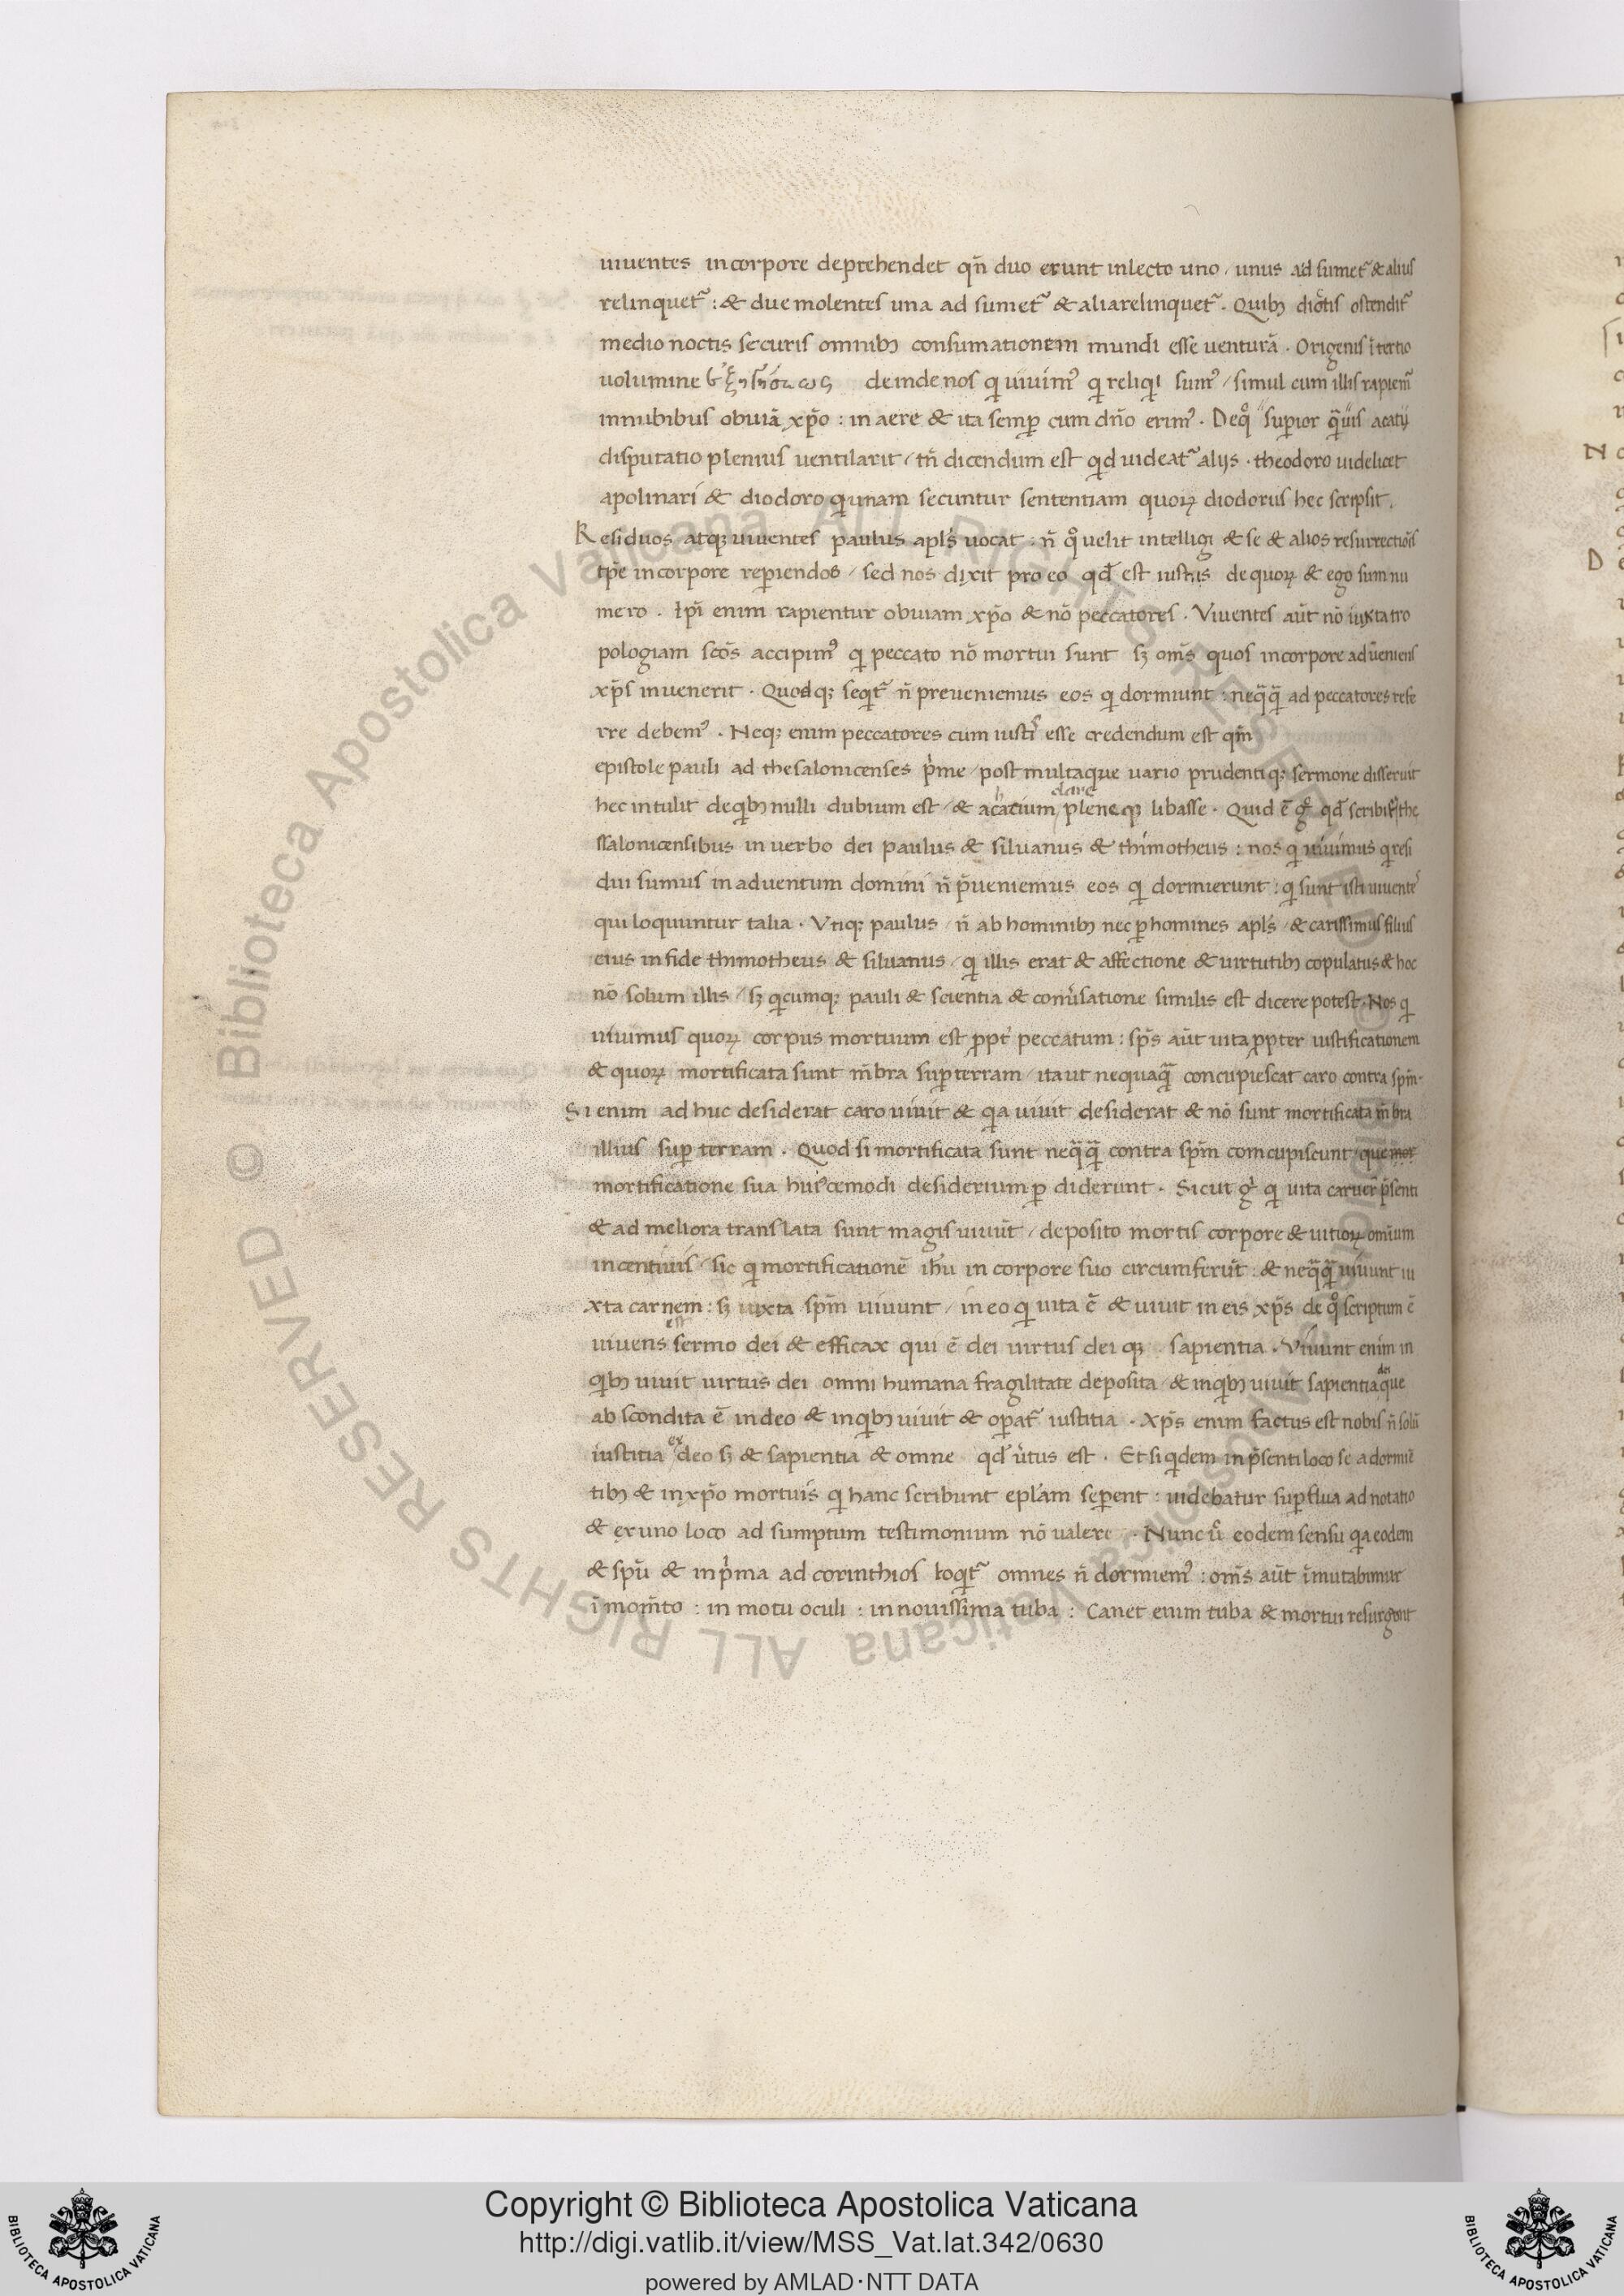 uiuentes in corpore deprehendet qn̄ duo erunt in lecto uno / unus ad sumet᷑ & alius
relinquet᷑ : & due molentes una ad sumet᷑ & alia relinquet᷑ . Quibꝫ dictis ostendit᷑
medio noctis securis omnibꝫ consumationem mundi esse venturā . Origenis ī tertio
uolumine deinde nos qi uiuimꝰ qi reliqi sumꝰ / simul cum illis rapiemꝰ
in nubibus obuiā xp̄o : in aere & ita semꝑ cum dn̄o erimꝰ . De qͦ supior quis acatij
disputatio plenius uentilarit / tn̄ dicendum est qid uideat᷑ alijs . theodoro uidelicet
apolinari & diodoro qi unam secuntur sententiam quoꝝ diodorus hec scripsit .
Residuos atqꝫ uiuentes paulus apls̄ uocat : n̄ qͦ uelit intelligi & se & alios resurrectiōis
tp̄e in corpore reꝑiendos / sed nos dixit pro eo qd̄ est iustus de quoꝝ & ego sum nu
mero . Ip̄i enim rapientur obuiam xp̄o & nō peccatores . Viuentes aūt nō iuxta tro
pologiam scōs accipimꝰ qi peccato nō mortui sunt sꝫ om̄s quos in corpore adueniens
xp̄s inuenerit . Quodqꝫ seqit᷑ n̄ preueniemus eos qi dormiunt : neqāqā ad peccatores refe
rre debemꝰ . Neqꝫ enim peccatores cum iustis esse credendum est qm̄
epistole pauli ad thesalonicenses pi̇me / post multaque uario prudentiqꝫ sermone disseruit
hec intulit de qibꝫ nulli dubium est / & acacium clare pleneqꝫ libasse . Quid ē gͦ qd̄ scribit᷑ the
ssalonicensibus in uerbo dei paulus & siluanus & thimotheus : nos qi uiuimus qi resi
dui sumus in aduentum domini n̄ p̄ueniemus eos qi dormierunt : qi sunt isti uiuentes
qui loquuntur talia . Vtiqꝫ paulus / n̄ ab hominibꝫ nec ꝑ homines apls̄ / & carissimus filius
eius in fide thimotheus & siluanus / qi illis erat & affectione & uirtutibꝫ copulatus & hoc
nō solum illis / sꝫ qicumqꝫ pauli & scientia & conūsatione similis est dicere potest . Nos qi
uiuimus quoꝝ corpus mortuum est ꝓpt̄ peccatum : sp̄s aūt uita ꝓpter iustificationem
& quoꝝ mortificata sunt m̄bra suꝑ terram / ita ut nequaqā concupiescat caro contra spm̄ .
Si enim ad huc desiderat caro uiuit & qia uiuit desiderat & nō sunt mortificata m̄bra
illius suꝑ terram . Quod si mortificata sunt neqāqā contra spm̄ comcupiscunt / que mor
mortificatione sua huiꝰcemodi desiderium ꝑ diderunt . Sicut gͦ qi uita caruer̄ p̄senti
& ad meliora translata sunt magis uiuūt / deposito mortis corpore & uitioꝝ omīum
incentiuis / sic qi mortificationē ih̄u in corpore suo circumferūt : & neqāqā uiuunt iu
xta carnem : sꝫ iuxta spm̄ uiuunt / in eo qi uita ē & uiuit in eis xp̄s de qͦ scriptum ē
uiuens est sermo dei & efficax qui ē dei uirtus dei qꝫ sapientia . Viuunt enim in
qibꝫ uiuit uirtus dei omni humana fragilitate deposita / & in qibꝫ uiuit sapientia dei que
ab scondita ē in deo & in qibꝫ uiuit & opat᷑ iustitia . Xp̄s enim factus est nobis n̄ solū
iustitia ex deo sꝫ & sapientia & omne qd̄ ūtus est . Et si qidem in p̄senti loco se a dormiē
tibꝫ & in xp̄o mortuis qi hanc scribunt epl̄am seꝑent : uidebatur suꝑflua ad notatio
& ex uno loco ad sumptum testimonium nō ualere . Nunc ū eodem sensu qia eodem
& spū & in pi̇ma ad corinthios loqit᷑ omnes n̄ dormiemꝰ : om̄s aūt īmutabimur
ī mom̄to : in motu oculi : in nouissima tuba : Canet enim tuba & mortui resurgent
Copyright © Biblioteca Apostolica Vaticana
http://digi.vatlib.it/view/MSS_Vat.lat.342/0630
powered by AMLAD·NTT DATA
BIBLIOTECA APOSTOLICA VATICANA
BIBLIOTECA APOSTOLICA VATICANA
© Biblioteca Apostolica Vaticana ALL RIGHTS RESERVED © Biblioteca Apostolica Vaticana ALL RIGHTS RESERVED